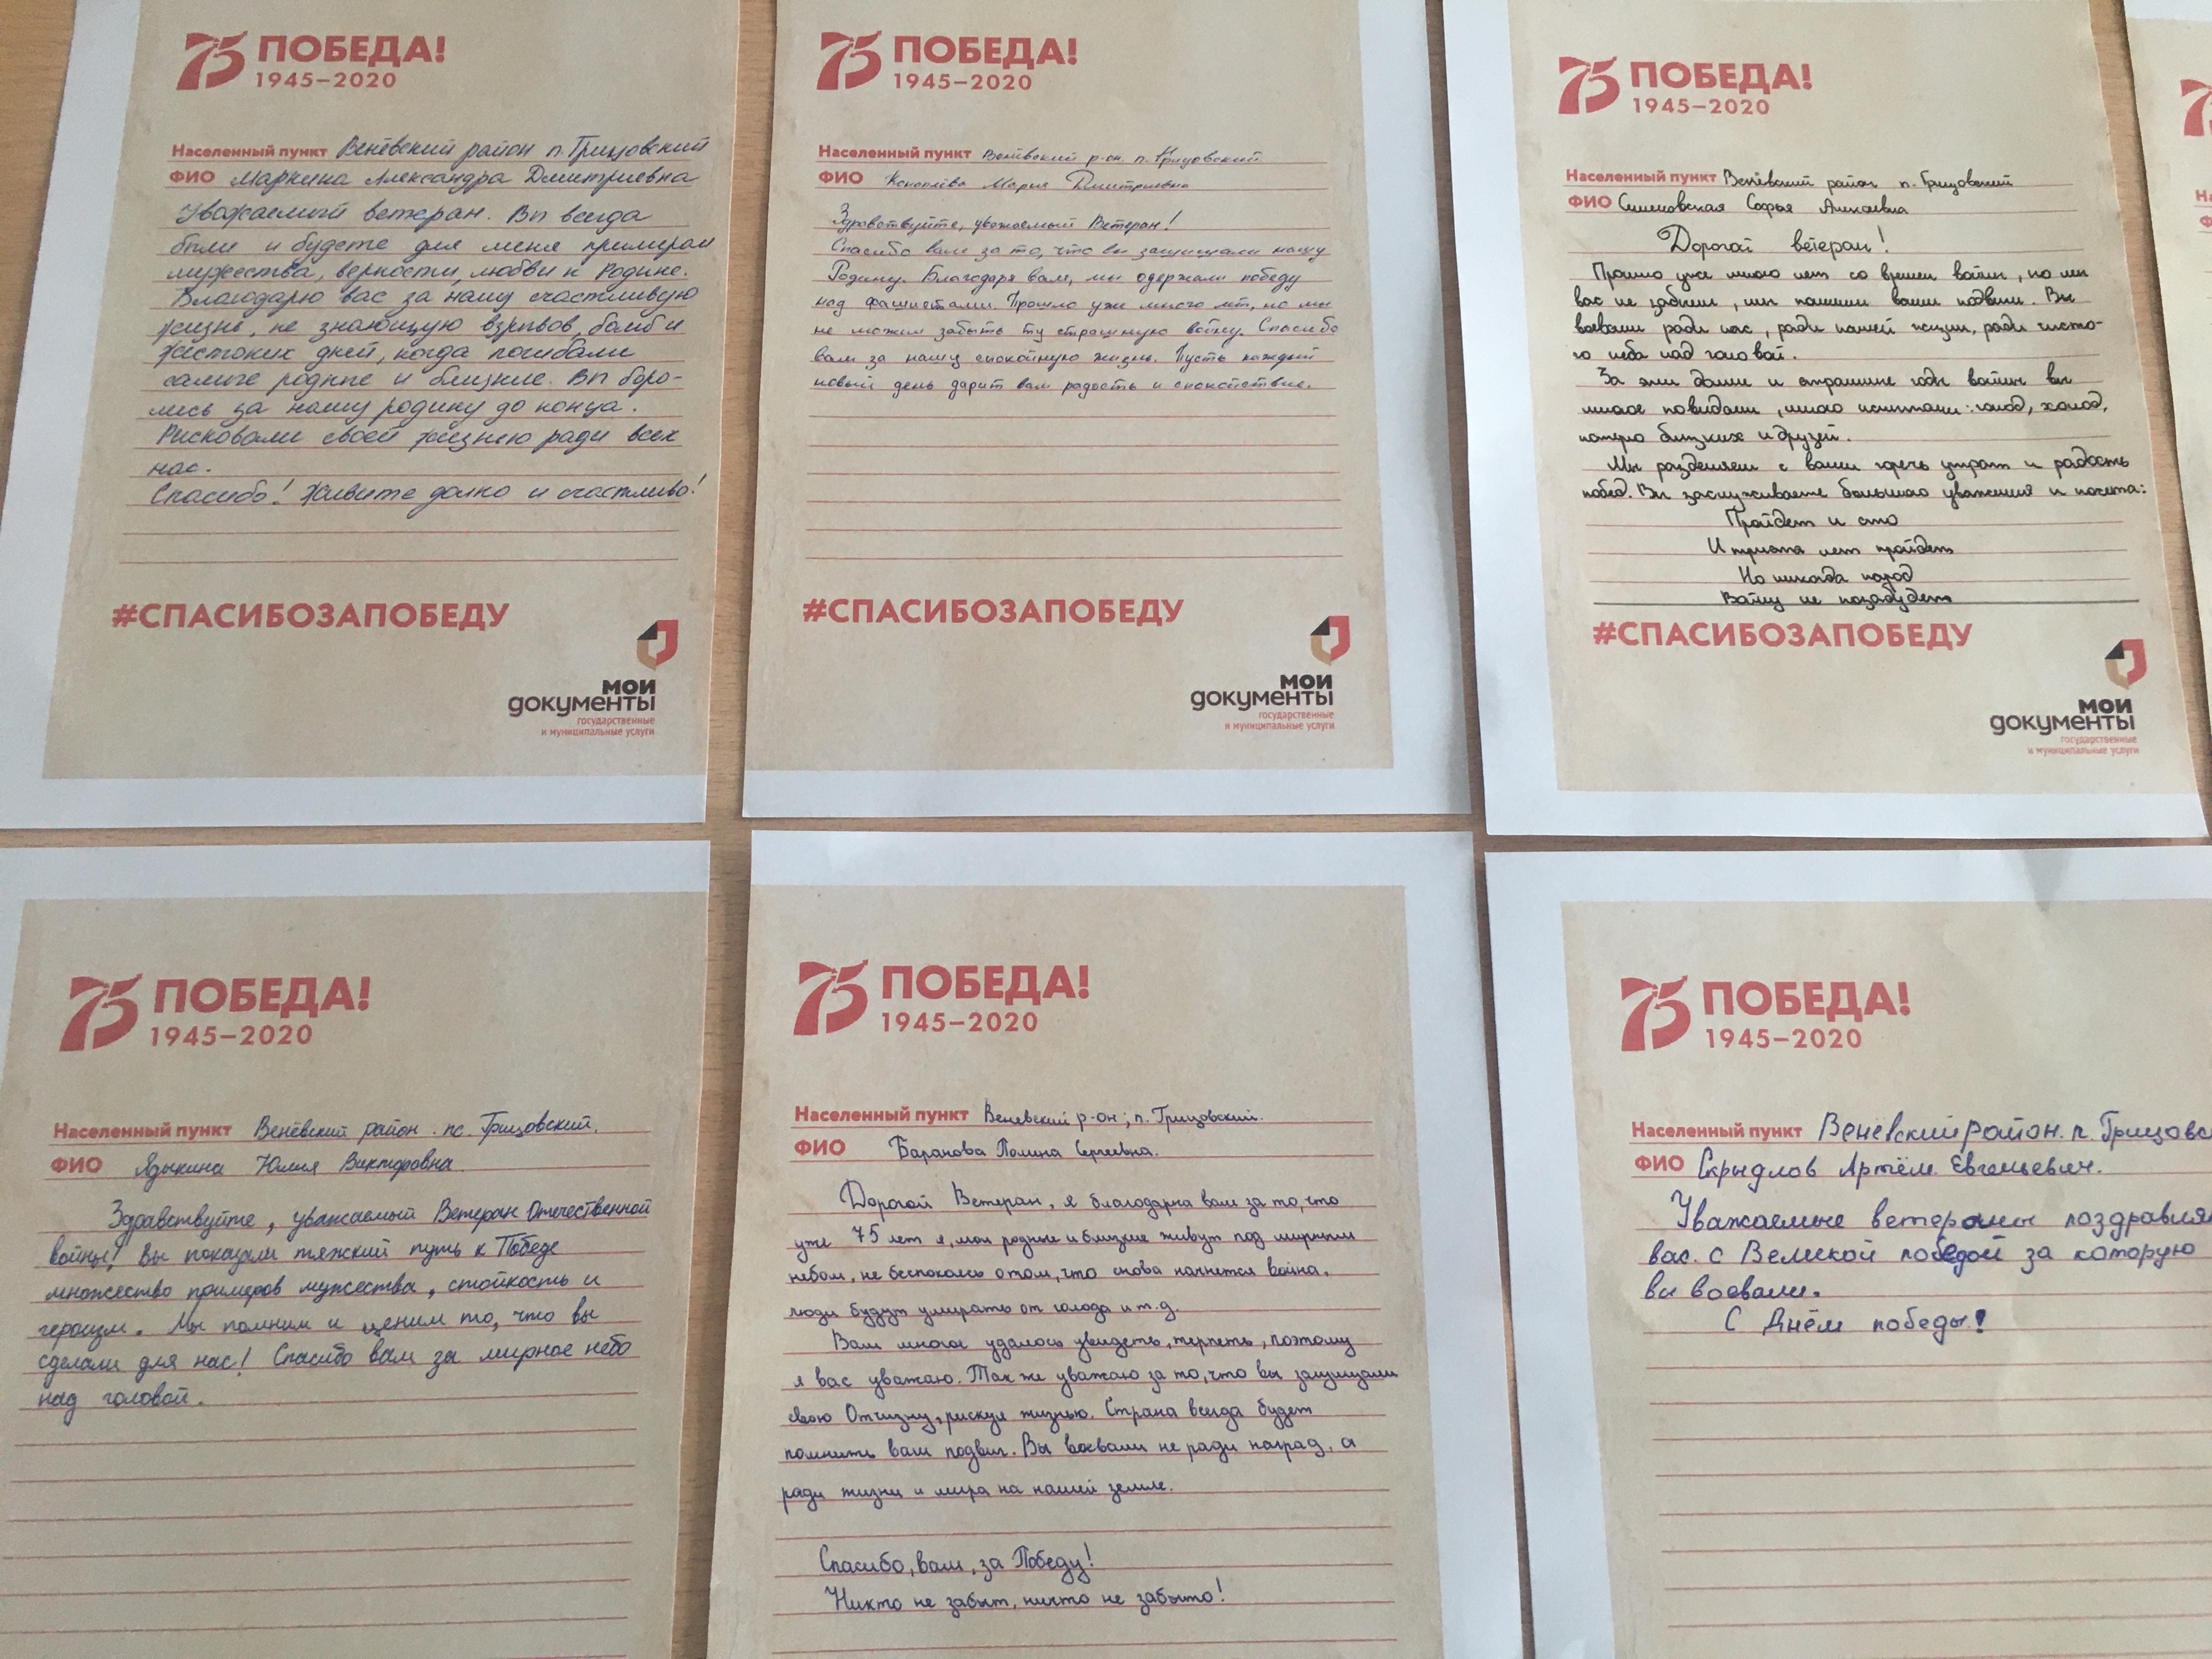 75 ПОБЕДА!
1945–2020
Населенный пункт Венёвский район п. Грицовский
ФИО Маркина Александра Дмитриевна
Уважаемый ветеран. Вы всегда
были и будете для меня примером
мужества, верности, любви к Родине.
Благодарю вас за нашу счастливую
жизнь, не знающую взрывов, бомб и
жестоких дней, когда погибали
самые родные и близкие. Вы боро-
лись за нашу родину до конца.
Рисковали своей жизнью ради всех
нас.
Спасибо! Живите долго и счастливо!
#СПАСИБОЗАПОБЕДУ
мои
документы
государственные
и муниципальные услуги
75 ПОБЕДА!
1945–2020
Населенный пункт Венёвский р-он. п. Грицовский
ФИО Мария Дмитриевна
Здравствуйте, уважаемый Ветеран!
Спасибо вам за то, что вы защищали нашу
Родину. Благодаря вам, мы одержали победу
над фашистами. Прошло уже много лет, но мы
не можем забыть ту страшную войну. Спасибо
вам за нашу спокойную жизнь. Пусть каждый
новый день дарит вам радость и спокойствие.
#СПАСИБОЗАПОБЕДУ
мои
документы
государственные
и муниципальные услуги
75 ПОБЕДА!
1945–2020
Населенный пункт Венёвский район п. Грицовский
ФИО Софья
Дорогой ветеран!
Прошло уже много лет со времен войны, но мы
вас не забыли, мы помним ваши подвиги. Вы
воевали ради нас, ради нашей жизни, ради чисто-
го неба над головой.
За эти долгие и страшные годы войны вы
многое повидали, много испытали: голод, холод,
потерю близких и друзей.
Мы разделяем с вами горечь утрат и радость
побед. Вы заслуживаете большого уважения и почета:
Пройдет и сто
И триста лет пройдет
Но никогда народ
Войну не позабудет
#СПАСИБОЗАПОБЕДУ
мои
документы
государственные
и муниципальные услуги
75 ПОБЕДА!
1945–2020
Населенный пункт Венёвский район. пс. Грицовский.
ФИО Языкина Юлия Викторовна
Здравствуйте, уважаемый Ветеран Отечественной
войны! Вы показали тяжский путь к Победе
множество примеров мужества, стойкость и
героизм. Мы помним и ценим то, что вы
сделали для нас! Спасибо вам за мирное небо
над головой.
75 ПОБЕДА!
1945–2020
Населенный пункт Веневский р-он; п. Грицовский.
ФИО Баранова Полина Сергеевна.
Дорогой Ветеран, я благодарна вам за то, что
уже 75 лет я, мои родные и близкие живут под мирным
небом, не беспокоясь о том, что снова начнется война,
люди будут умирать от голода и т.д.
Вам многое удалось увидеть, терпеть, поэтому
я вас уважаю. Так же уважаю за то, что вы защищали
свою Отчизну, рискуя жизнью. Страна всегда будет
помнить ваш подвиг. Вы воевали не ради наград, а
ради жизни и мира на нашей земле.
Спасибо, вам, за Победу!
Никто не забыт, ничто не забыто!
75 ПОБЕДА!
1945–2020
Населенный пункт Венёвский район. п. Грицовс
ФИО Скрыдлов Артём Евгеньевич.
Уважаемые ветераны поздравля
вас с Великой победой за которую
вы воевали.
С Днём победы!